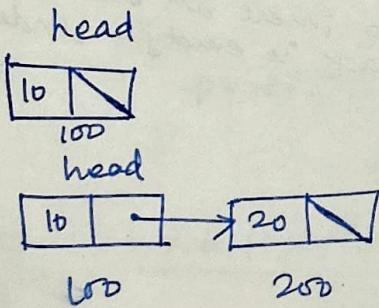 head
10
100
head
10 20
100 200